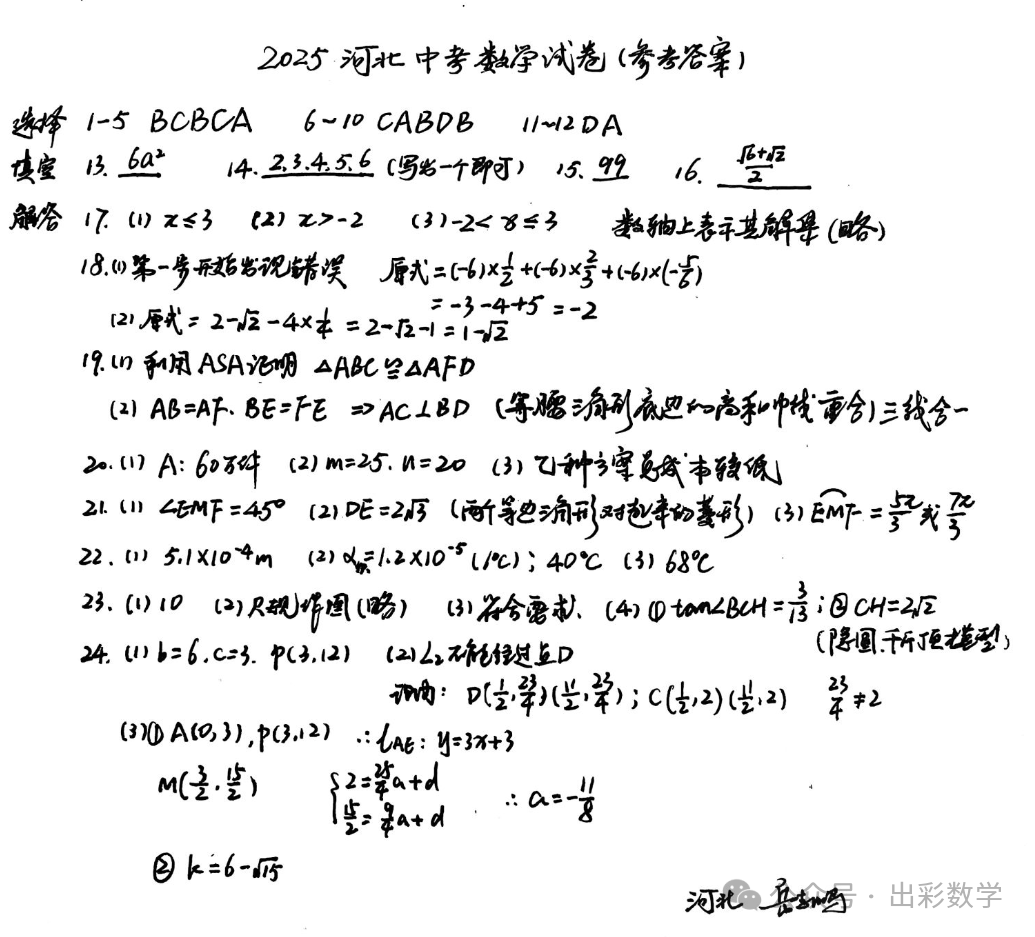 2025 河北中考数学试卷(参考答案)
选择 1-5 BCBCA 6~10 CABDB 11~12 DA
填空 13. 6a² 14. 2.3.4.5.6 (写出一个即可) 15. 99 16. (√6+√2)/2
解答 17. (1) x≤3 (2) x>-2 (3) -2<x≤3 数轴上表示其解集(略)
18.(1)第一步开始出现错误 原式=(-6)×1/2+(-6)×2/3+(-6)×(-5/6)
=-3-4+5=-2
(2)原式=2-√2-4×1/4=2-√2-1=1-√2
19.(1) 利用ASA证明 △ABC≌△AFD
(2) AB=AF. BE=FE ⇒ AC⊥BD (等腰三角形底边的高和中线重合)三线合一
20.(1) A: 60万件 (2) m=25. n=20 (3) 乙种方案总成本较低
21.(1) ∠EMF=45° (2) DE=2√3 (两个等边三角形对起来的菱形) (3) EMF=5π/3或7π/3
22.(1) 5.1×10⁻⁴m (2) α=1.2×10⁻⁵(1/℃); 40℃ (3) 68℃
23.(1) 10 (2)尺规作图(略) (3)符合要求. (4) ① tan∠BCH=3/13; ② CH=2√2
(隐圆. 模型)
24.(1) b=6. c=3. P(3,12) (2) L₂不能经过点D
证明: D(1/2,23/4)(11/2,23/4); C(1/2,2)(11/2,2) 23/4≠2
(3)① A(0,3), P(3,12) ∴ l_AE: y=3x+3
M(3/2,15/2) {2=25/4a+d ∴ a=-11/8
15/2=9/4a+d
② k=6-√15
河北
公众号·出彩数学